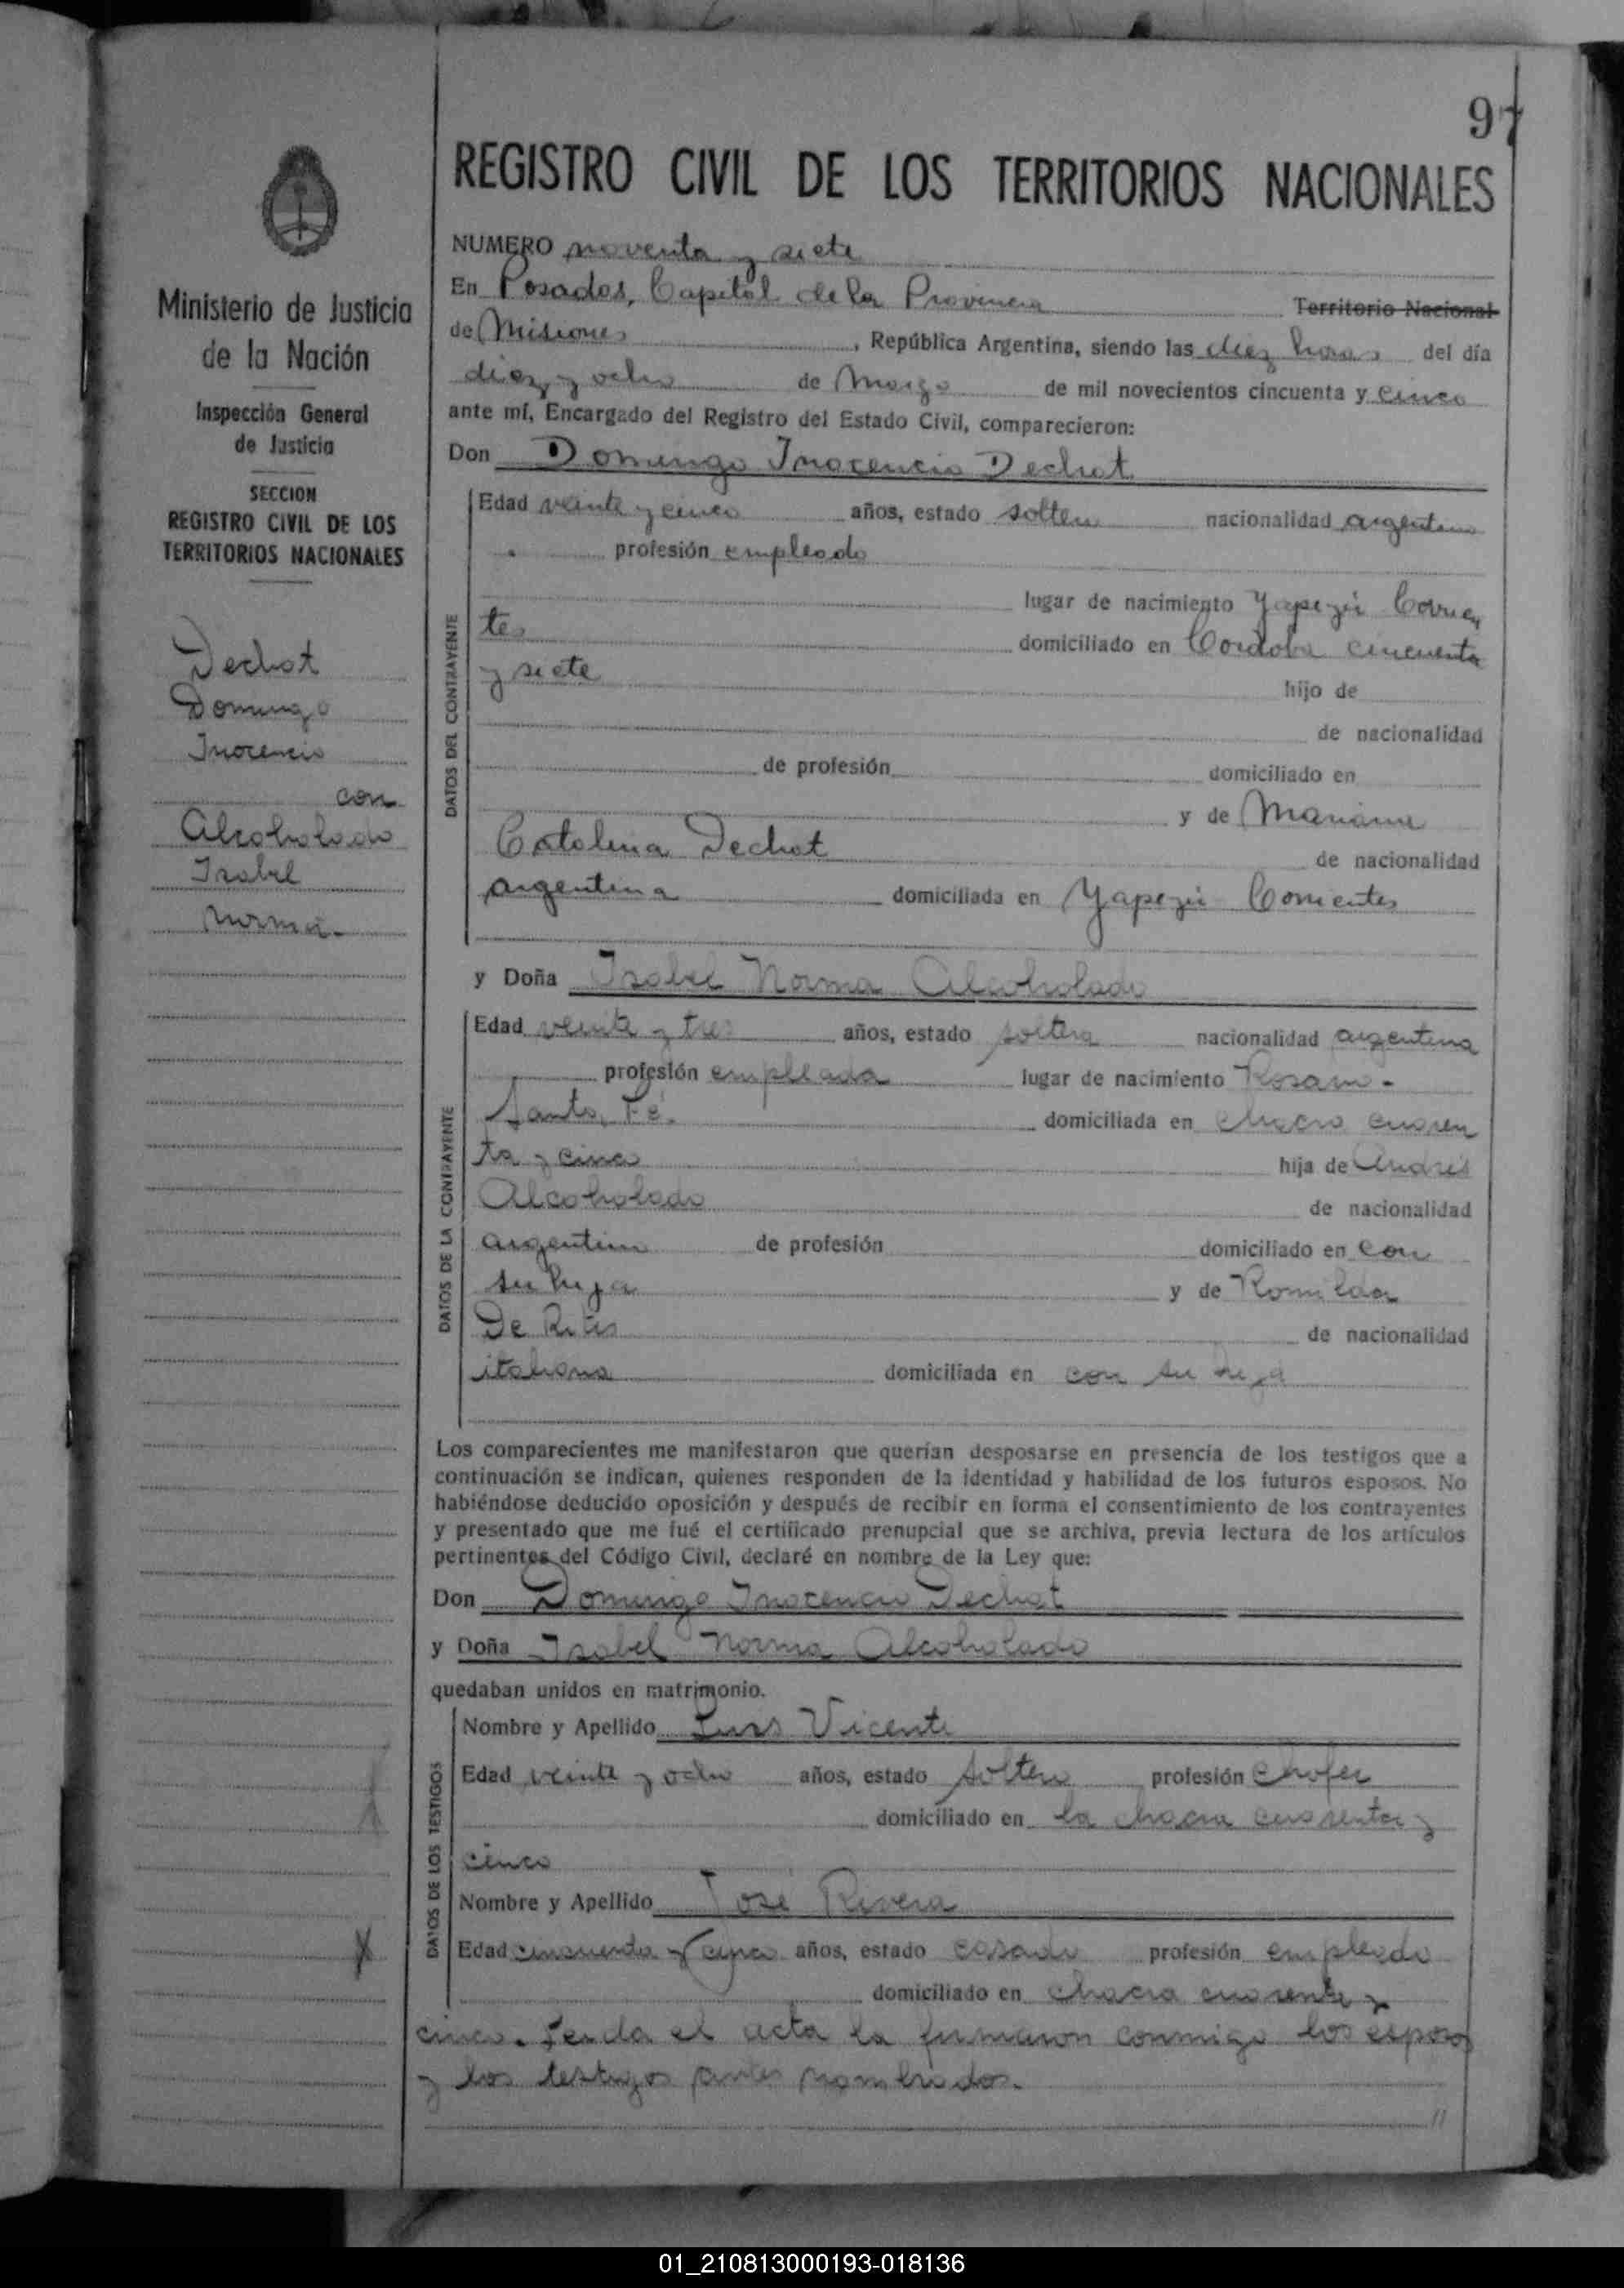 97
REGISTRO CIVIL DE LOS TERRITORIOS NACIONALES
NUMERO noventa y siete
En Posadas, Capital de la Provincia Territorio Nacional
de Misiones, República Argentina, siendo las diez horas del día
diez y ocho de Marzo de mil novecientos cincuenta y cinco
ante mí, Encargado del Registro del Estado Civil, comparecieron:
Don Domingo Inocencio Dechat
Edad veinte y cinco años, estado soltero nacionalidad argentino
profesión empleado
lugar de nacimiento Yapeyú Corrien
tes domiciliado en Cordoba cincuenta
y siete hijo de
de nacionalidad
de profesión domiciliado en
y de Mariana
Catalina Dechat de nacionalidad
argentina domiciliada en Yapeyú Corrientes
y Doña Isabel Norma Alcoholado
Edad veinte y tres años, estado soltera nacionalidad argentina
profesión empleada lugar de nacimiento Rosario -
Santa Fé. domiciliada en chacra cuaren
ta y cinco hija de Andrés
Alcoholado de nacionalidad
argentino de profesión domiciliado en con
su hija y de Romilda
De Ritis de nacionalidad
italiana domiciliada en con su hija
Los comparecientes me manifestaron que querían desposarse en presencia de los testigos que a
continuación se indican, quienes responden de la identidad y habilidad de los futuros esposos. No
habiéndose deducido oposición y después de recibir en forma el consentimiento de los contrayentes
y presentado que me fué el certificado prenupcial que se archiva, previa lectura de los artículos
pertinentes del Código Civil, declaré en nombre de la Ley que:
Don Domingo Inocencio Dechat
y Doña Isabel Norma Alcoholado
quedaban unidos en matrimonio.
Nombre y Apellido Luis Vicente
Edad veinte y ocho años, estado soltero profesión chofer
domiciliado en la chacra cuarenta y
cinco
Nombre y Apellido José Rivera
Edad cincuenta y cinco años, estado casado profesión empleado
domiciliado en chacra cuarenta y
cinco. Leida el acta la firmaron conmigo los esposos
y los testigos antes nombrados.
Ministerio de Justicia
de la Nación
Inspección General
de Justicia
SECCION
REGISTRO CIVIL DE LOS
TERRITORIOS NACIONALES
Dechat
Domingo
Inocencio
con
Alcoholado
Isabel
Norma.
DATOS DEL CONTRAYENTE
DATOS DE LA CONTRAYENTE
DATOS DE LOS TESTIGOS
01_210813000193-018136